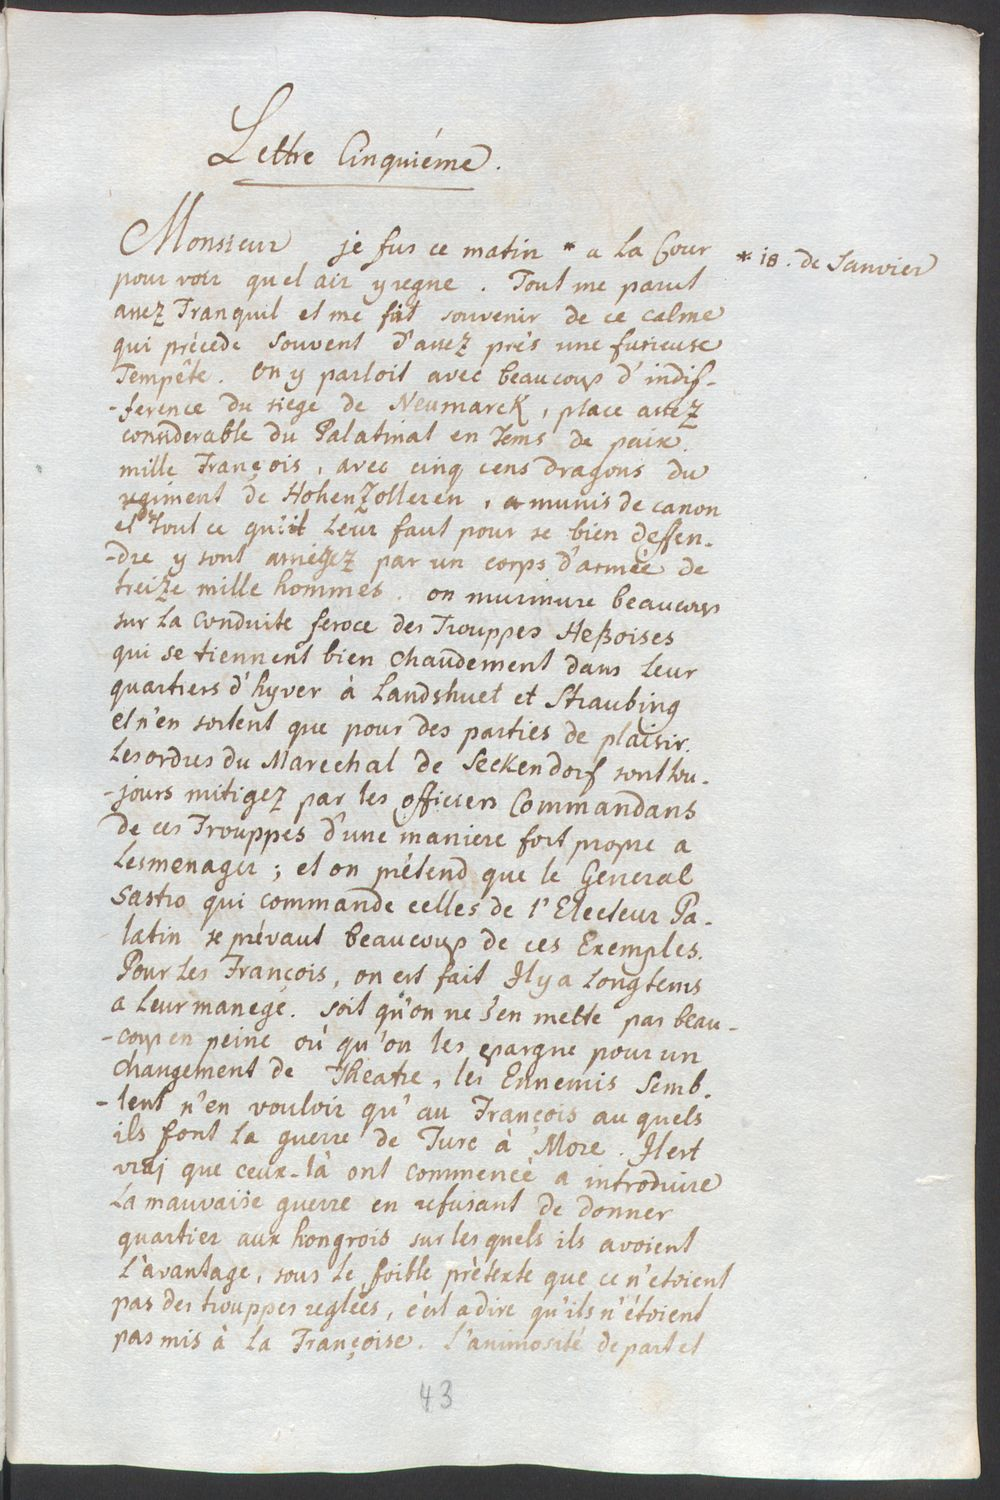 Lettre Cinquiéme.
Monsieur je fus ce matin * a La Cour
* 18. de Janvier
pour voir quel air y regne. Tout me parut
assez Tranquil et me fit souvenir de ce calme
qui précede souvent d'assez près une furieuse
Tempête. On y parloit avec beaucoup d'indif-
-ference du siege de NeumarcK, place assez
considerable du Palatinat en Tems de paix.
mille François, avec cinq cens Dragons du
regiment de HohenZolleren, munis de canon
et Tout ce qu'il Leur faut pour se bien deffen-
-dre y sont assiégez par un corps d'armée de
treize mille hommes. on murmure beaucoup
sur La Conduite feroce des Trouppes Heßoises
qui se tiennent bien chaudement dans Leur
quartiers d'hyver à Landshuet et Straubing
et n'en sortent que pour des parties de plaisir.
Les ordres du Marechal de Seckendorf sont tou-
-jours mitigez par les officiers Commandans
de ces Trouppes d'une maniere fort propre a
Les menager; et on prétend que le General
Sastro qui commande celles de l'Electeur Pa-
latin se prévaut beaucoup de ces Exemples.
Pour Les François, on est fait Il y a Longtems
a Leur manege. soit qu'on ne s'en mette pas beau-
-coup en peine où qu'on les epargne pour un
changement de Theatre, les Ennemis semb-
-lent n'en vouloir qu'au François au quels
ils font La guerre de Turc à More. Il est
vraj que ceux-là ont commencé a introduire
La mauvaise guerre en refusant de donner
quartier aux hongrois sur les quels ils avoient
L'àvantage, sous Le foible prétexte que ce n'etoient
pas des trouppes reglées, c'est a dire qu'ils n'étoient
pas mis à La Françoise. L'animosité de part et
43